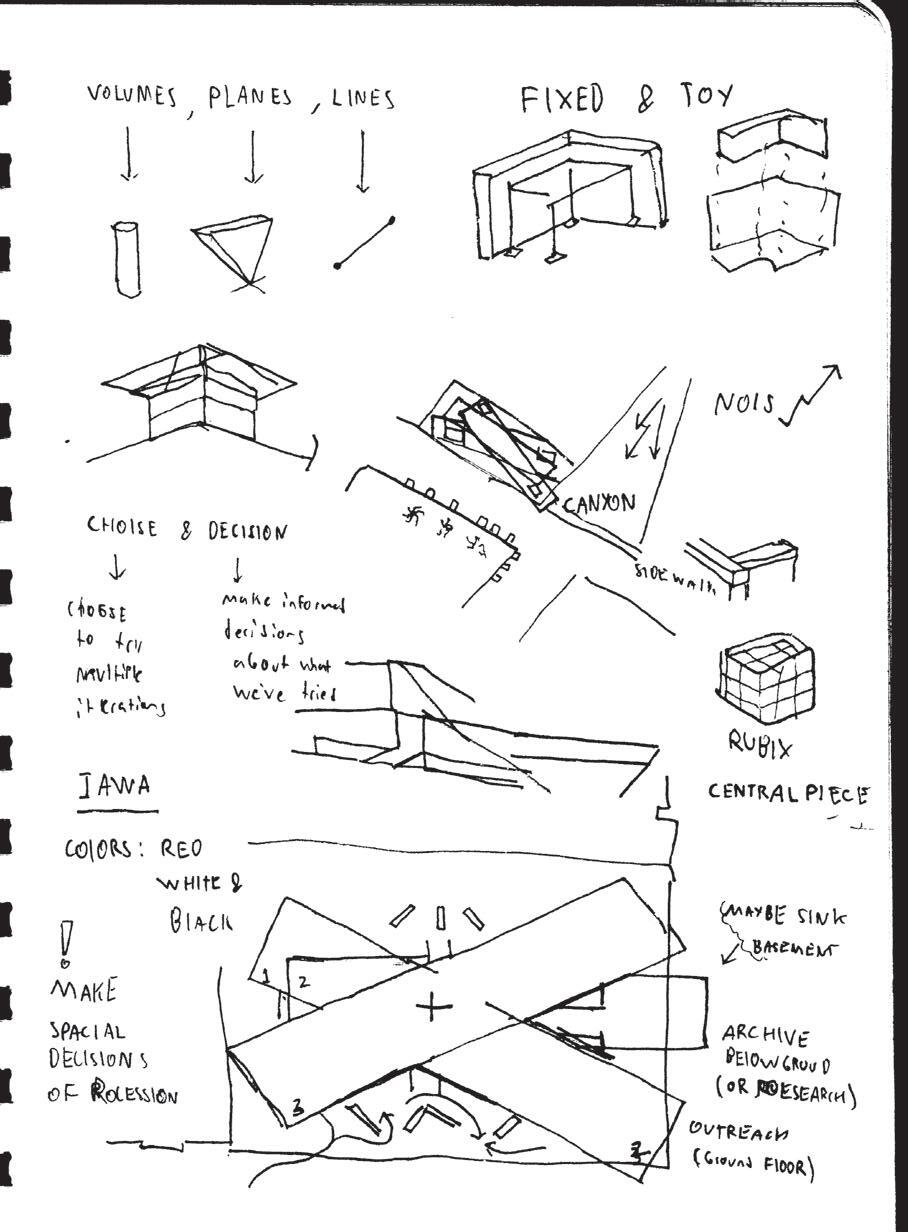 VOLUMES, PLANES, LINES
FIXED & TOY
NOIS
CANYON
SIDEWALK
CHOISE & DECISION
CHOOSE
to try
multiple
iterations
make informed
decisions
about what
we've tried
RUBIX
CENTRAL PIECE
IAWA
COLORS: RED
WHITE &
BLACK
!
MAKE
SPACIAL
DECISIONS
OF
1
2
3
2
MAYBE SINK
BASEMENT
ARCHIVE
BELOW GROUD
OUTREACH
(Ground FLOOR)